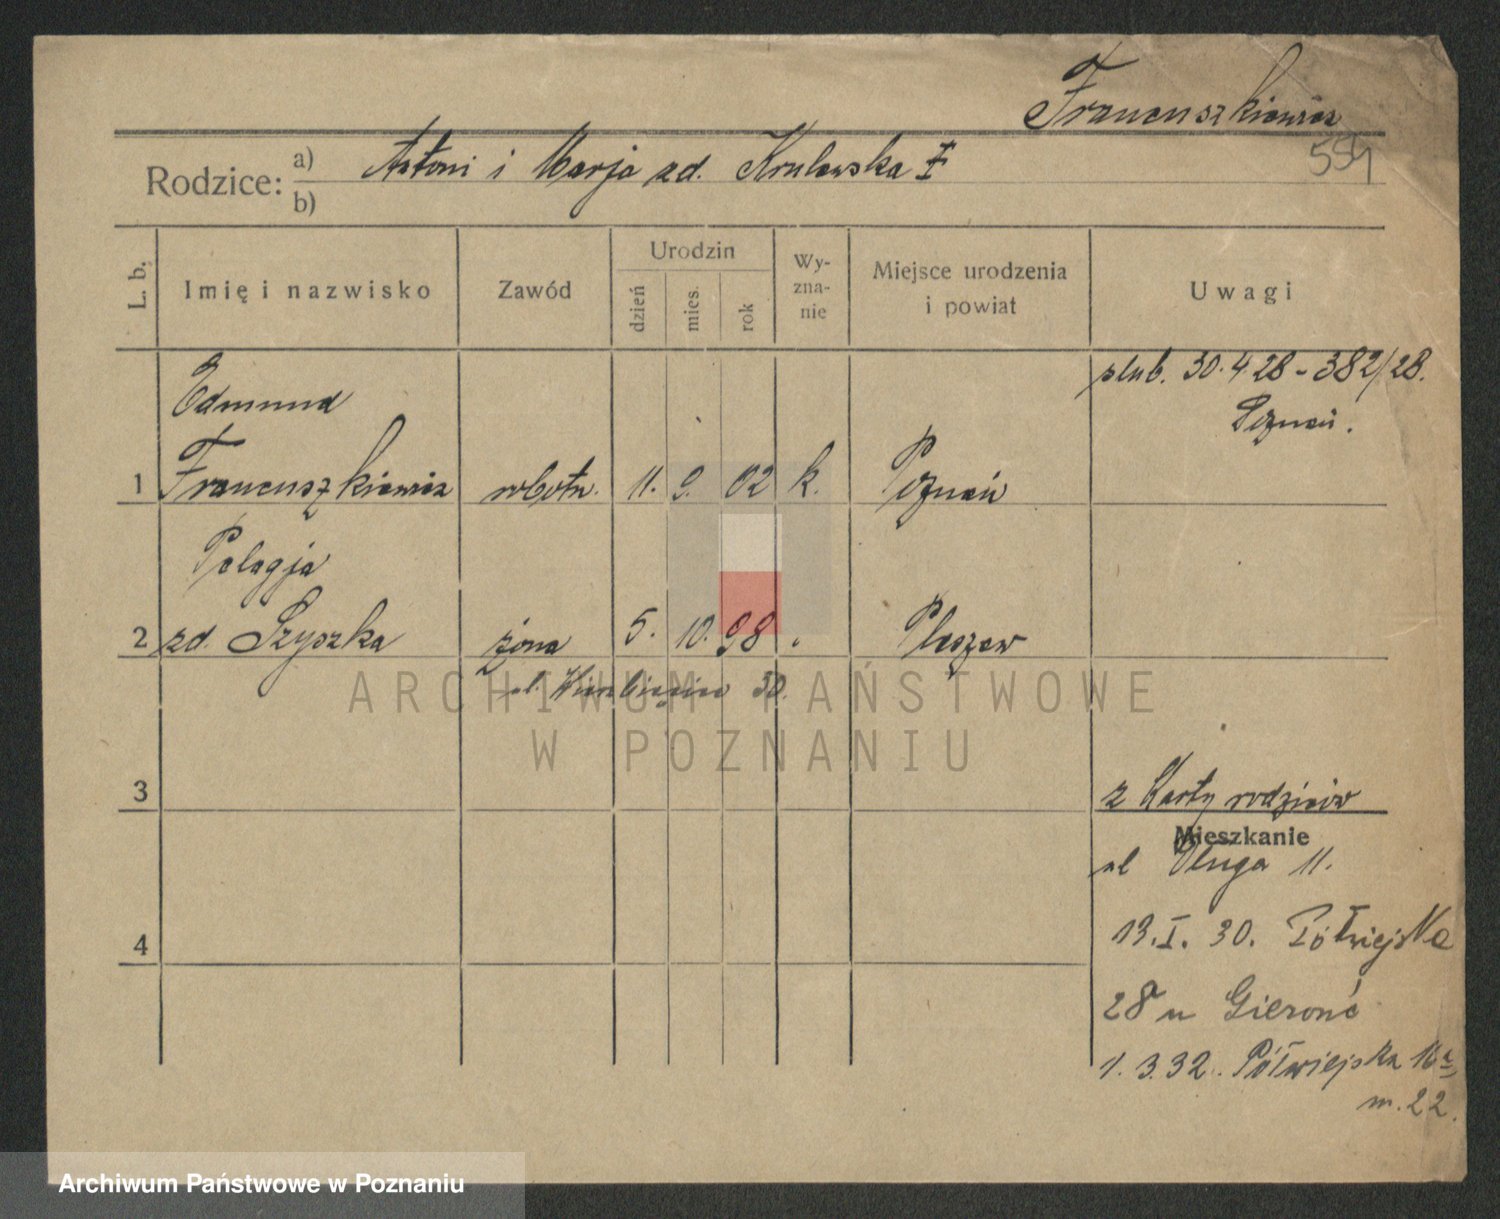 Francuszkiewicz
554
Rodzice: a) Antoni i Marja zd. Krulewska
b)
L. b. Imię i nazwisko Zawód Urodzin dzień mies. rok Wyznanie Miejsce urodzenia i powiat Uwagi
ślub. 30.4 28 - 382/28.
Poznań.
Edmund
1 Francuszkiewicz robotn. 11. 9. 02 k. Poznań
Pelagja
2 zd. Szyszka żona 5. 10. 98 " Pleszew
ul. Wierzbięcice 30.
ARCHIWUM PAŃSTWOWE
W POZNANIU
3
z Karty rodziców
Mieszkanie
ul Długa 11.
4
13.I.30. Półwiejska
28 u Gieronć
1.3.32. Półwiejska 16a
m. 22.
Archiwum Państwowe w Poznaniu